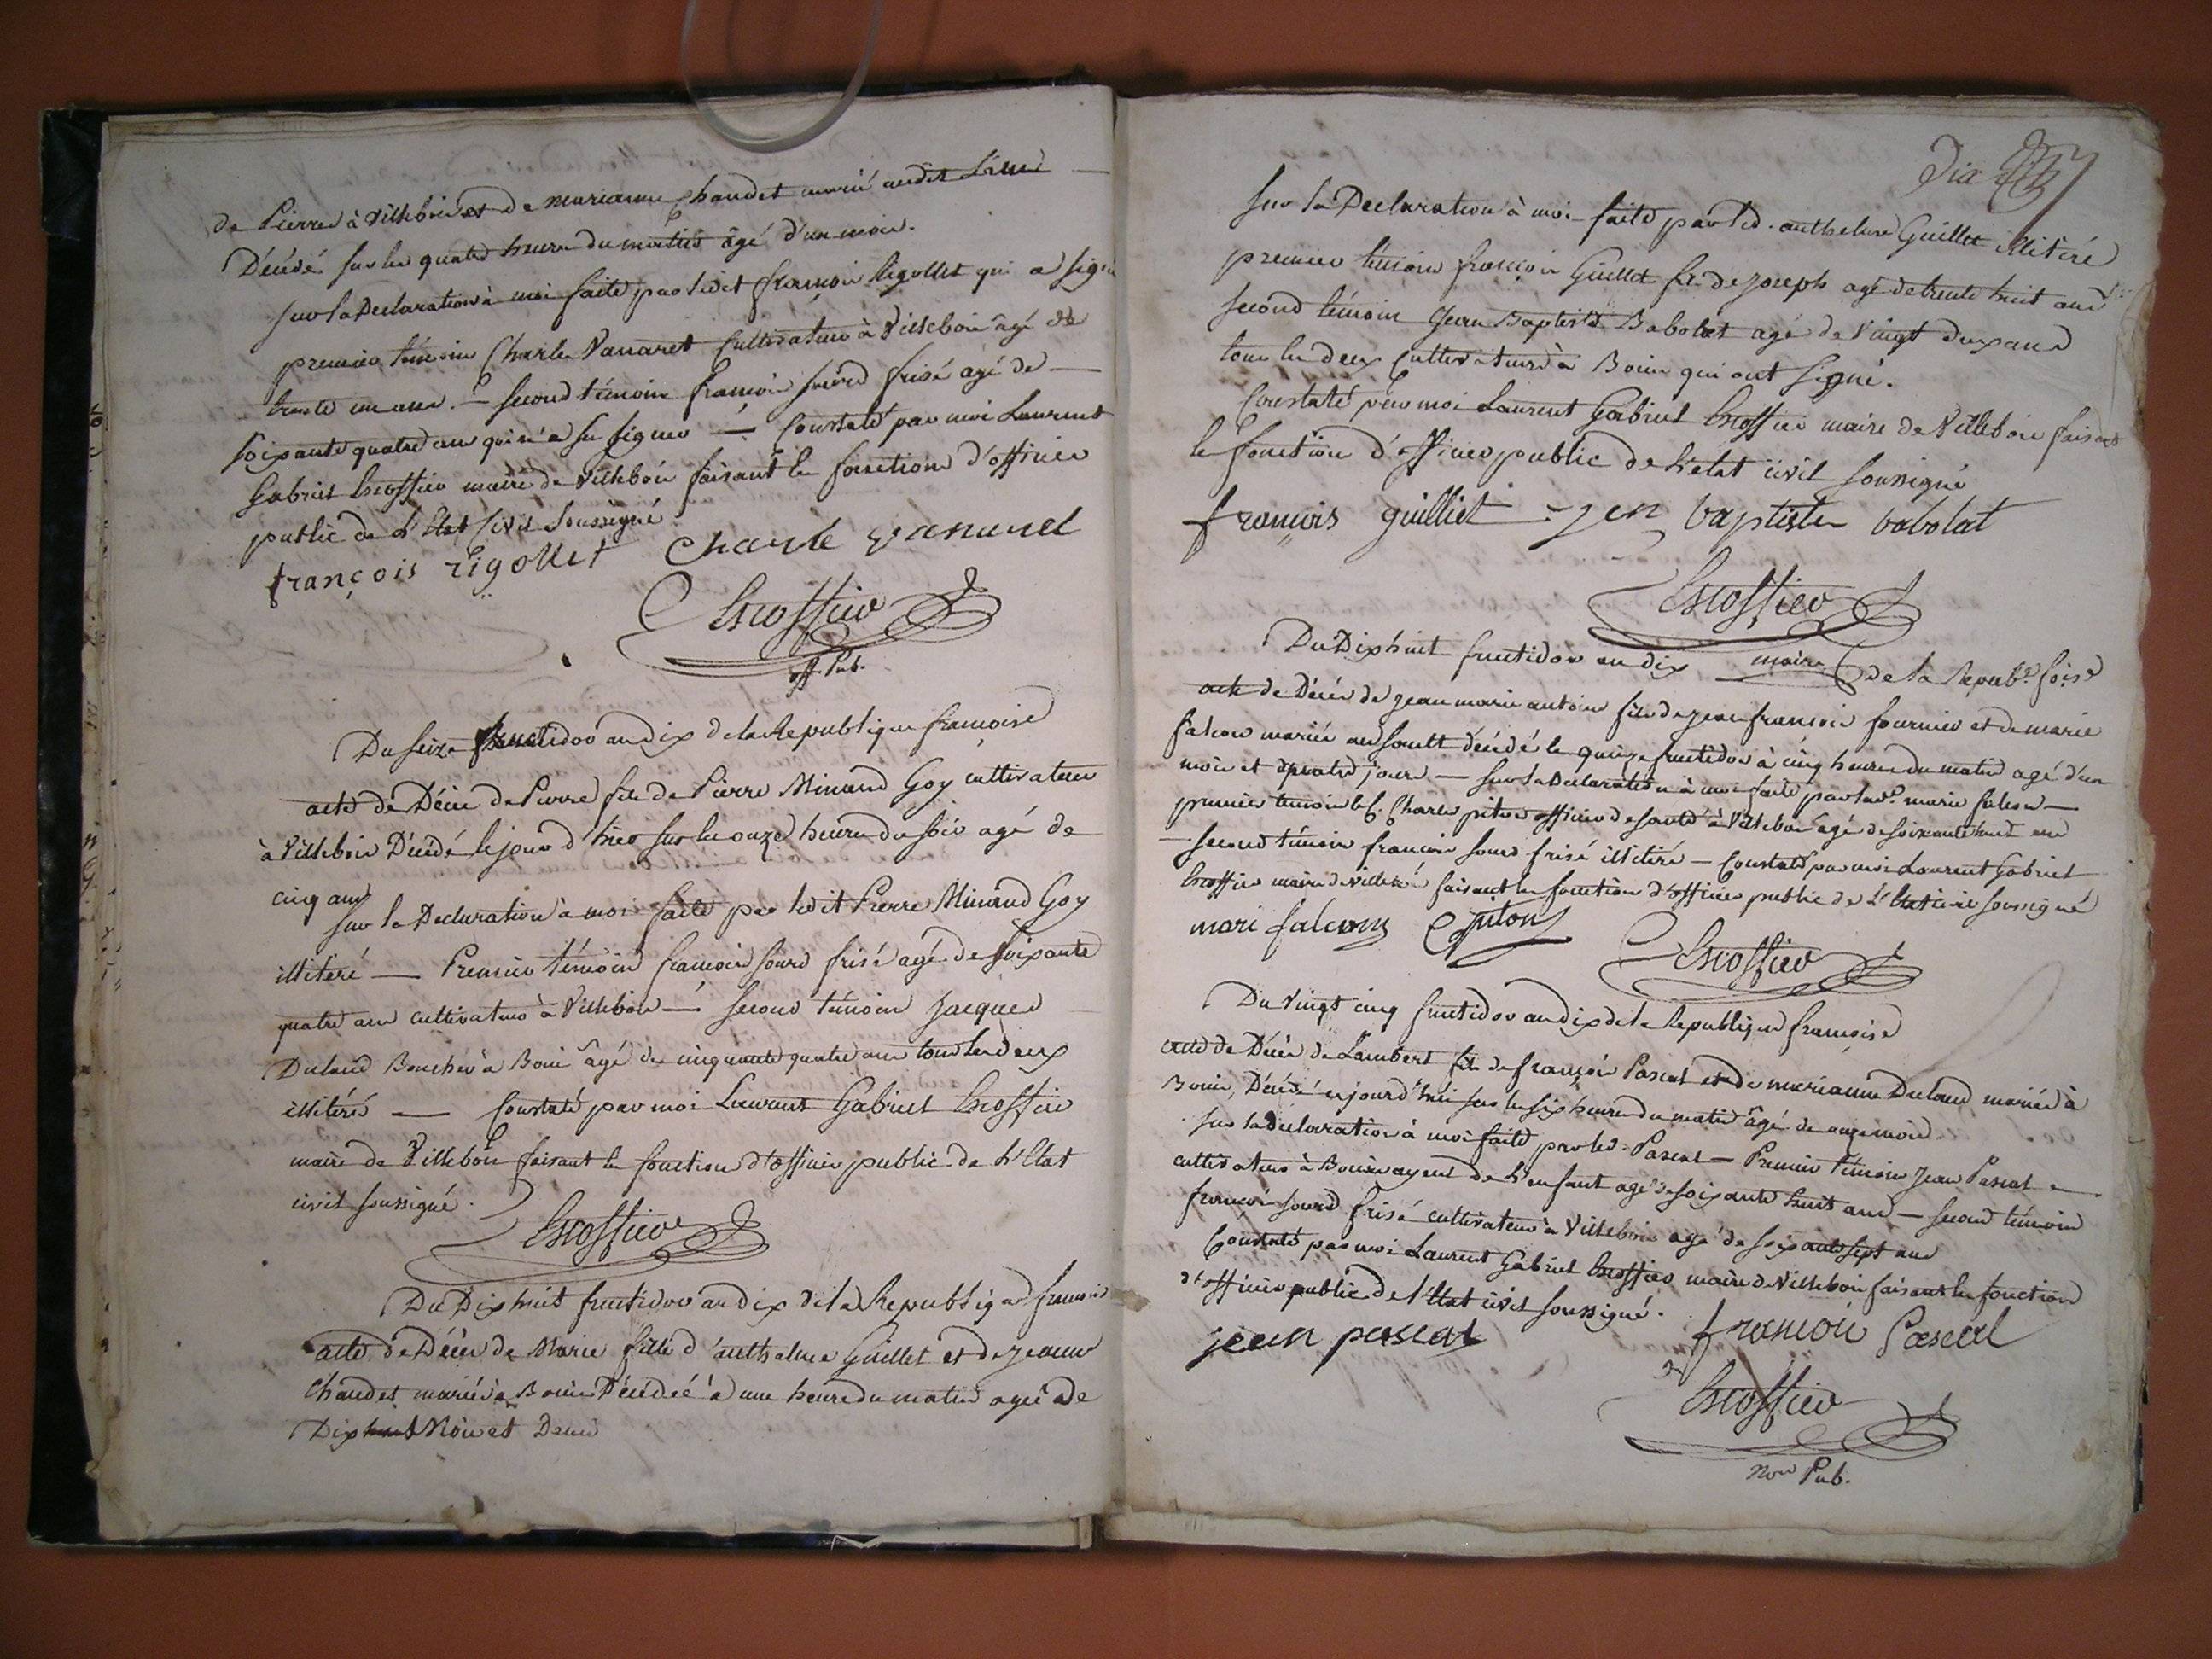 de Pierre à Villebois et de marianne chaudet marié audit Lieu
Décédé sur les quatre heures du matin âgé d'un mois.
sur la Declaration à moi faite par ledit françois Rigollet qui a signé
premier témoin Charle Vanaret Cultivateur à Villebois âgé de
trente un ans. — second témoin françois sourd frisé agé de —
soixante quatre ans qui n'a su signer — Constaté par moi Laurent
Gabriel Escoffier maire de Villebois faisant les fonctions d'officier
public de l'Etat Civil Soussigné
françois rigollet Charle vanaret
Escoffier
off. Pub.
Du seize fructidor an dix de la Republique françoise
acte de Décès de Pierre fils de Pierre Minand Goy cultivateur
à Villebois Décédé le jour d'hier sur les onze heures du soir agé de
cinq ans
sur la Declaration à moi faite par ledit Pierre Minand Goy
illitéré — Premier témoin françois sourd frisé agé de soixante
quatre ans cultivateur à Villebois — second témoin Jacques
Duland Boucher à Bouis âgé de cinquante quatre ans tous les deux
illitéré — Constaté par moi Laurent Gabriel Escoffier
maire de Villebois faisant les fonctions d'officier public de l'Etat
civil soussigné.
Escoffier
Du Dixhuit fructidor an dix de la Republique françoise
acte de Décès de Marie fille d'anthelme Guillet et de jeanne
Chaudet mariés à Bouis Décédée à une heure du matin agée de
Dix huit Mois et Demi
Dix
sur la Declaration à moi faite par led. anthelme Guillet illitéré
premier témoin françois Guillet fils de Joseph agé de trente huit ans
second témoin Jean Baptiste Babolat agé de Vingt deux ans
tous les deux Cultivateurs à Bouis qui ont signé.
Constaté par moi Laurent Gabriel Escoffier maire de Villebois faisant
les fonctions d'officier public de l'etat civil soussigné
françois guilliet jen baptiste babolat
Escoffier
maire
Du Dixhuit fructidor an dix de la Repub.e fois.e
acte de Décès de jean marie antoine fils de jean françois fournier et de marie
falcon mariés au sault décédé le quinze fructidor à cinq heures du matin agé d'un
mois et quatre jours — sur la Declaration à moi faite par lad.e marie falcon —
premier témoin le C. Charles piton officier de santé à Villebois agé de soixante huit ans
— second témoin françois sourd frisé illitéré — Constaté par moi Laurent Gabriel
Escoffier maire de Villebois faisant les fonctions d'officier public de l'Etat civil soussigné
mari falcon Cpiton
Escoffier
Du Vingt cinq fructidor an dix de la Republique françoise
acte de Décès de Lambert fils de françois Pascal et de marianne Duland mariés à
Bouis, Décédé aujourd'hui sur les six heures du matin âgé de onze mois
sur la declaration à moi faite par led. Pascal — Premier témoin Jean Pascal
cultivateur à Bouis ayeul de l'enfant agé de soixante huit ans — second témoin
françois sourd frisé cultivateur à Villebois agé de soixante sept ans
Constaté par moi Laurent Gabriel Escoffier maire de Villebois faisant les fonctions
d'officier public de l'Etat civil soussigné.
jean pascal françois Pascal
Escoffier
Pub.